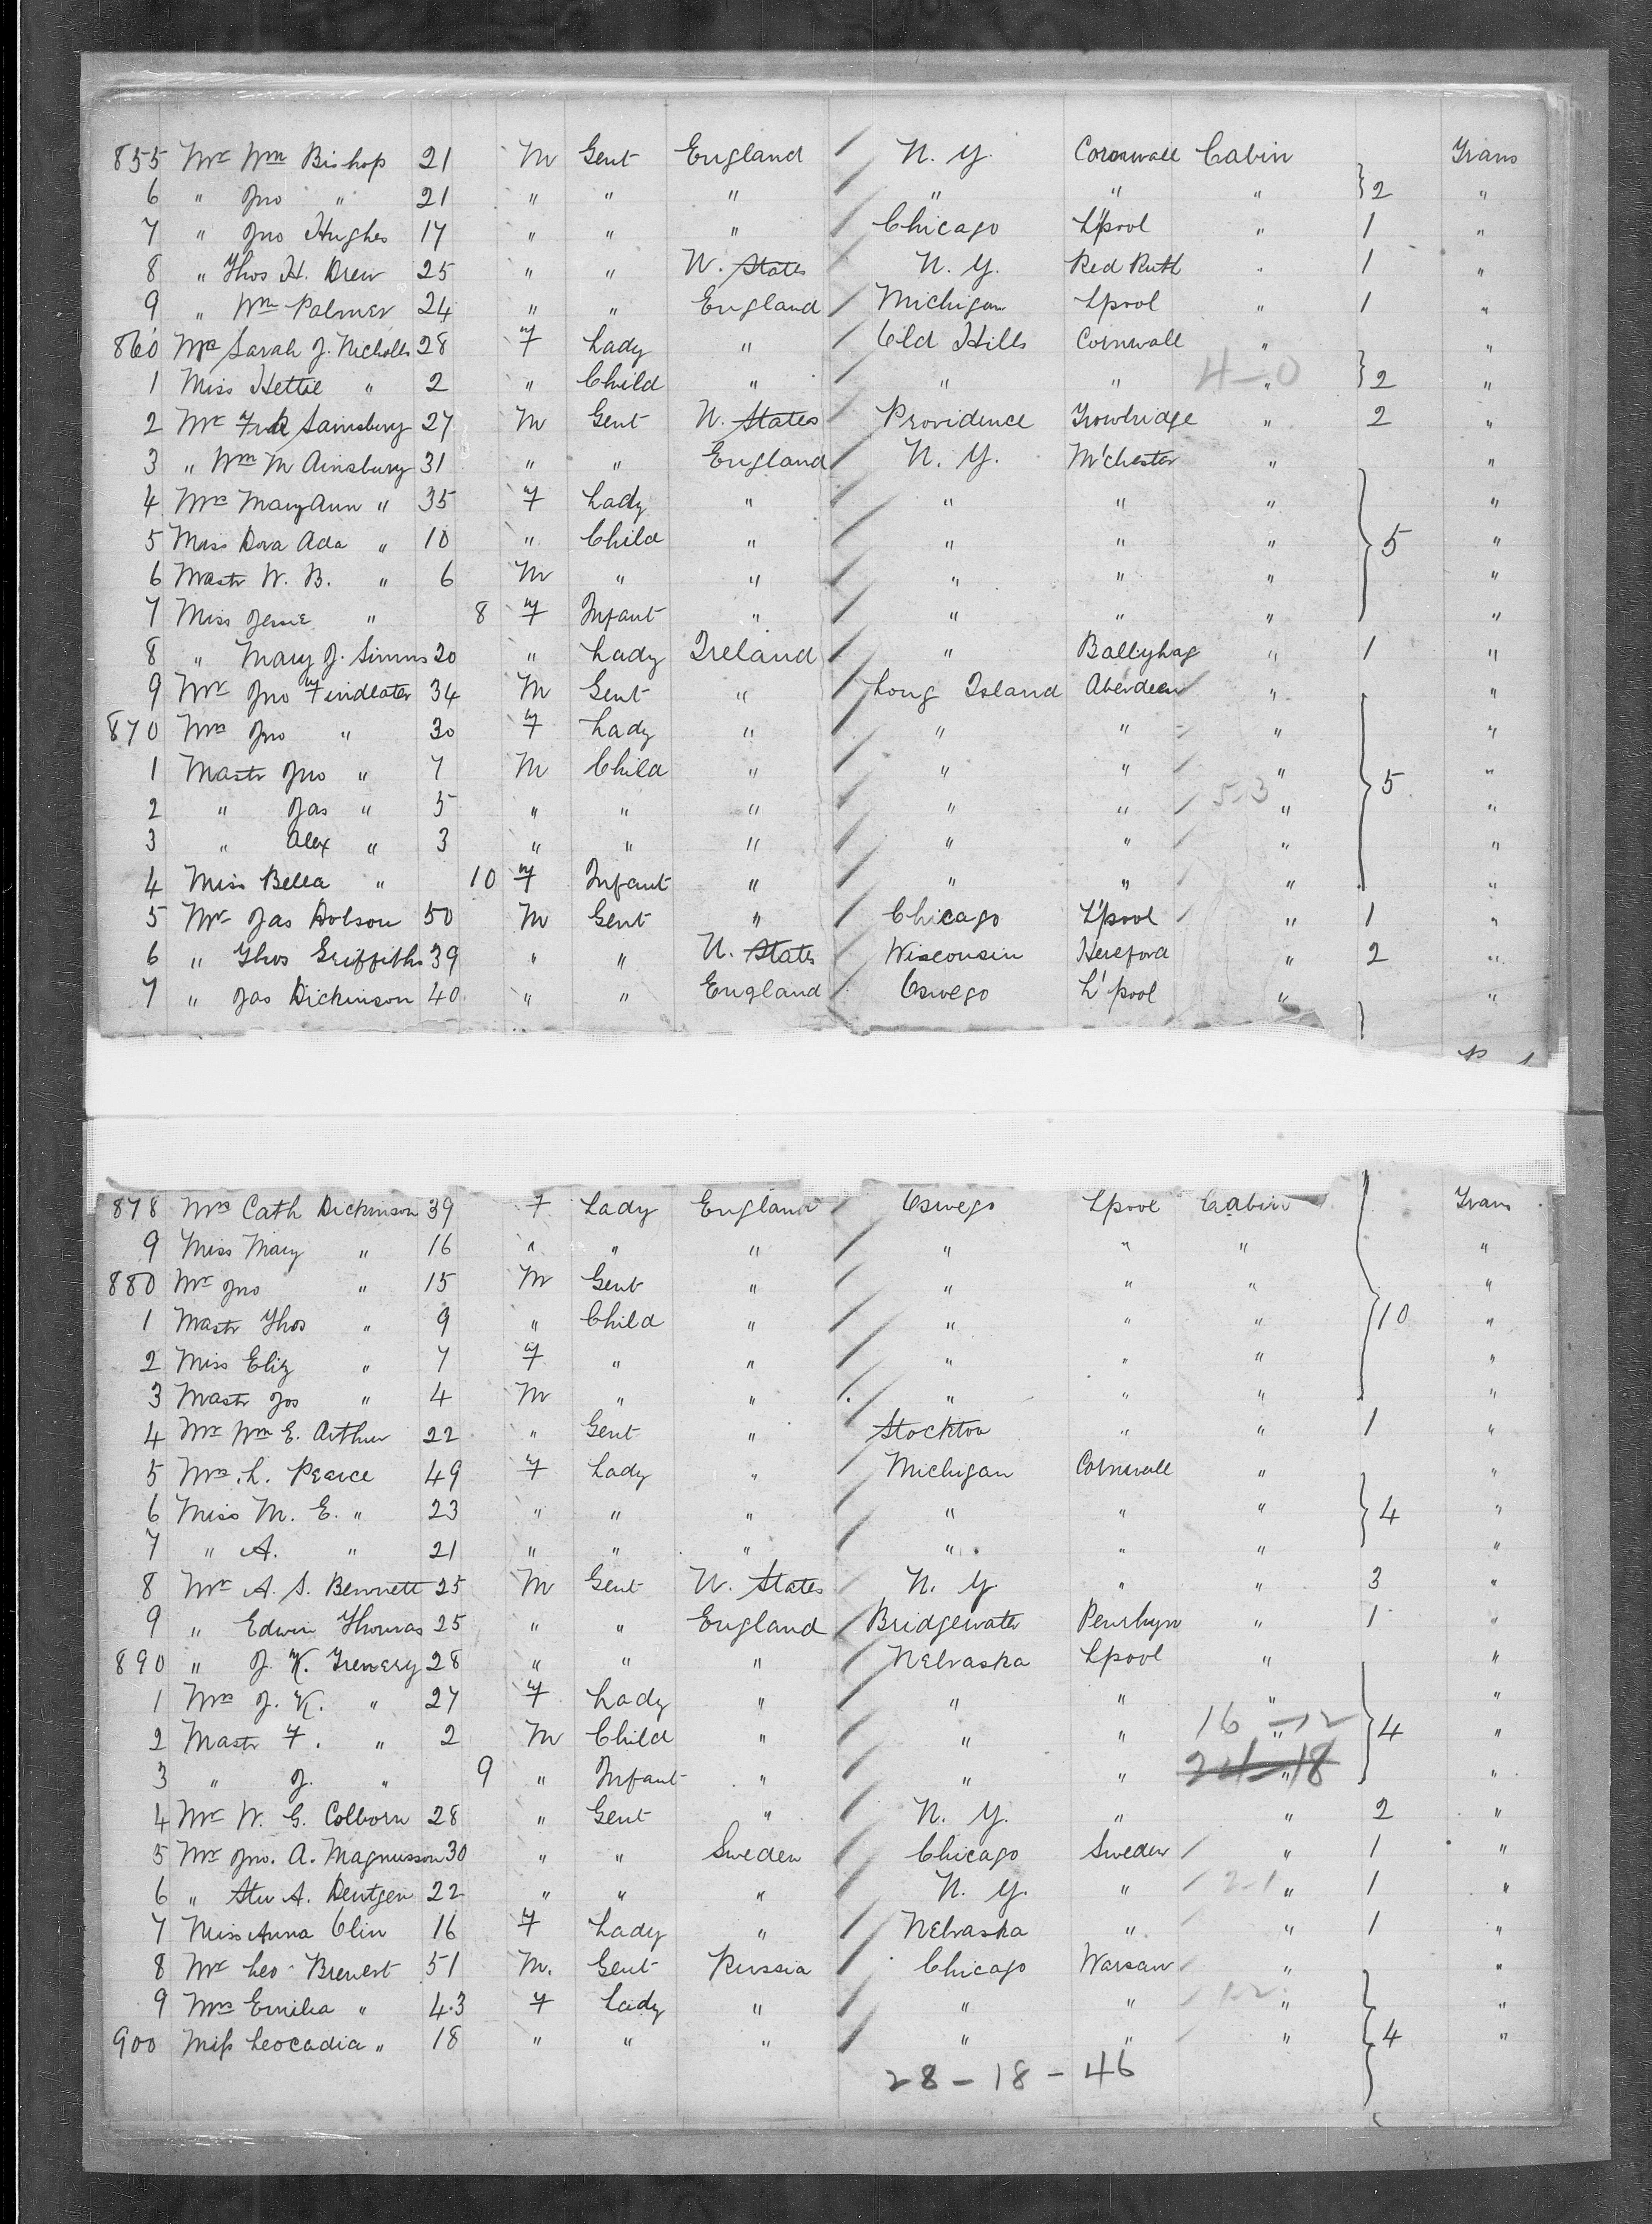 855 Mr Wm Bishop 21 M Gent England / N. Y. Cornwall Cabin Trans
6 " Jno " 21 " " " / " " " } 2 "
7 " Jno Hughes 17 " " " / Chicago L'pool " 1 "
8 " Thos H. Drew 25 " " U. States / N. Y. Red Ruth " 1 "
9 " Wm Palmer 24 " " England / Michigan Lpool " 1 "
860 Mrs Sarah J. Nicholls 28 F Lady " / Old Hills Cornwall " "
1 Miss Hettie " 2 " Child " / " " 4-0 " } 2 "
2 Mr Fredk Sainsbury 27 M Gent U. States / Providence Trowbridge " 2 "
3 " Wm M Ainsbury 31 " " England / N. Y. M'chester " "
4 Mrs Mary Ann " 35 F Lady " / " " " "
5 Miss Dora Ada " 10 " Child " / " " " } 5 "
6 Mastr W. B. " 6 M " " / " " " "
7 Miss Jessie " 8 F Infant " / " " " "
8 " Mary J. Simms 20 " Lady Ireland / " Ballyhag " 1 "
9 Mr Jno Findlater 34 M Gent " / Long Island Aberdeen " "
870 Mrs Jno " 30 F Lady " / " " " "
1 Mastr Jno " 7 M Child " / " " " "
2 " Jas " 5 " " " / " " 5-3 " } 5 "
3 " Alex " 3 " " " / " " " "
4 Miss Bella " 10 F Infant " / " " " "
5 Mr Jas Dobson 50 M Gent " / Chicago L'pool " 1 "
6 " Thos Griffiths 39 " " U. States / Wisconsin Hereford " 2 "
7 " Jas Dickinson 40 " " England / Oswego L'pool " } "
878 Mrs Cath Dickinson 39 F Lady England / Oswego Lpool Cabin Trans
9 Miss Mary " 16 " " " / " " " "
880 Mr Jno " 15 M Gent " / " " " "
1 Mastr Thos " 9 " Child " / " " " } 10 "
2 Miss Eliz " 7 F " " / " " " "
3 Mastr Jos " 4 M " " / " " " "
4 Mr Wm E. Arthur 22 " Gent " / Stockton " " 1 "
5 Mrs L. Pearce 49 F Lady " / Michigan Cornwall " "
6 Miss M. E. " 23 " " " / " " " } 4 "
7 " A. " 21 " " " / " " " "
8 Mr A. S. Bennett 25 M Gent U. States / N. Y. " " 3 "
9 " Edwin Thomas 25 " " England / Bridgewater Penrhyn " 1 "
890 " J. K. Trenery 28 " " " / Nebraska Lpool " "
1 Mrs J. K. " 27 F Lady " / " " " "
2 Mastr F. " 2 M Child " / " " 16-12 " } 4 "
3 " J. " 9 " Infant " / " " 24-18 " "
4 Mr W. G. Colborn 28 " Gent " / N. Y. " " 2 "
5 Mr Jno. A. Magnusson 30 " " Sweden / Chicago Sweden " 1 "
6 " A. Dentgen 22 " " " / N. Y. " 2-1 " 1 "
7 Miss Anna Olin 16 F Lady " / Nebraska " " 1 "
8 Mr Leo Brenert 51 M. Gent Russia / Chicago Warsaw " "
9 Mrs Emilia " 43 F Lady " / " " 1-2 " "
900 Miss Leocadia " 18 " " " / " " " } 4 "
28 - 18 - 46